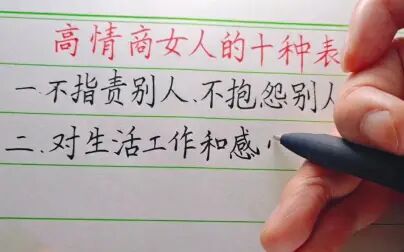 高情商女人的十种表
一.不指责别人、不抱怨别人
二.对生活工作和感